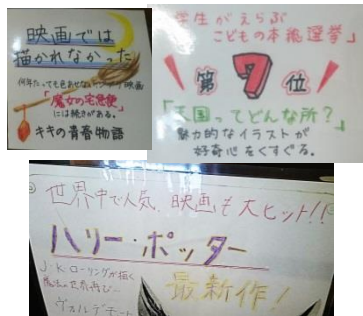 映画では
描かれなかった
何年たっても色あせない
映画
「魔女の宅急便」
には続きがある。
キキの青春物語
学生がえらぶ
こどもの本総選挙
第7位
「天国ってどんな所?」
魅力的なイラストが
好奇心をくすぐる。
世界中で人気、映画も大ヒット!!
ハリー・ポッター
J・K・ローリングが描く
最新作!
ヴォルデモート